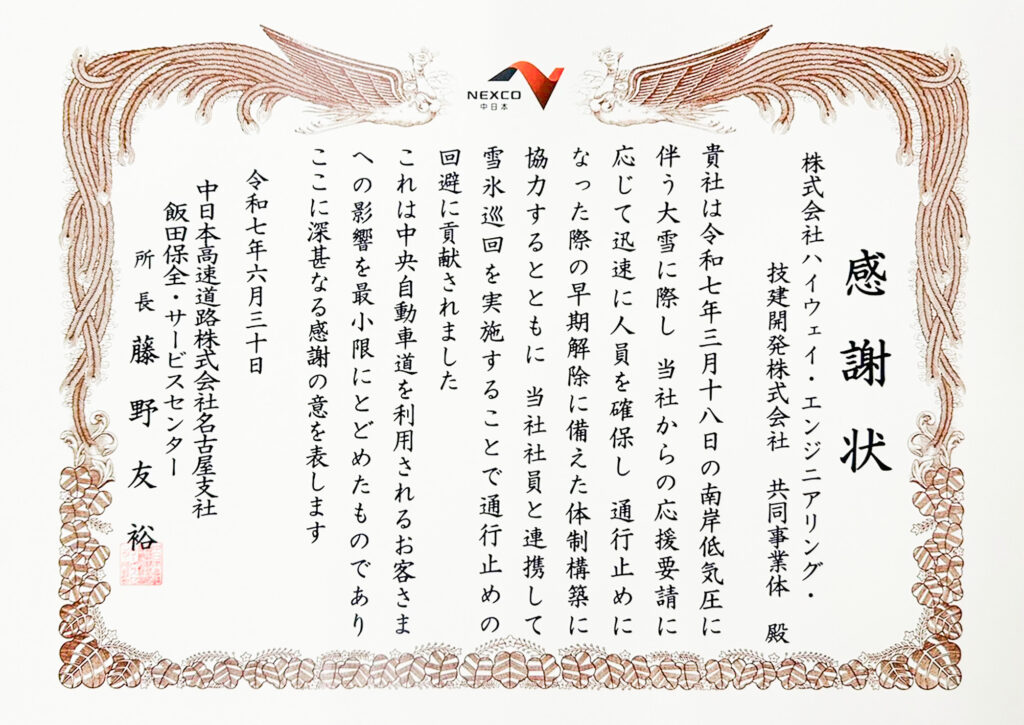 NEXCO
中日本
感謝状
株式会社ハイウェイ・エンジニアリング・
技建開発株式会社 共同事業体 殿
貴社は令和七年三月十八日の南岸低気圧に
伴う大雪に際し 当社からの応援要請に
応じて迅速に人員を確保し 通行止めに
なった際の早期解除に備えた体制構築に
協力するとともに 当社社員と連携して
雪氷巡回を実施することで通行止めの
回避に貢献されました
これは中央自動車道を利用されるお客さま
への影響を最小限にとどめたものであり
ここに深甚なる感謝の意を表します
令和七年六月三十日
中日本高速道路株式会社名古屋支社
飯田保全・サービスセンター
所長 藤野友裕